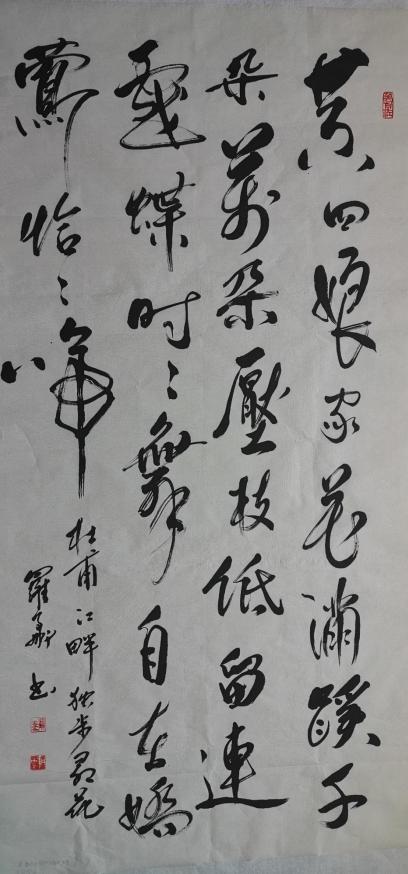 黄四娘家花滿蹊千
朵萬朵壓枝低留連
戲蝶时々舞自在嬌
鶯恰々啼
杜甫江畔独步尋花
羅 书